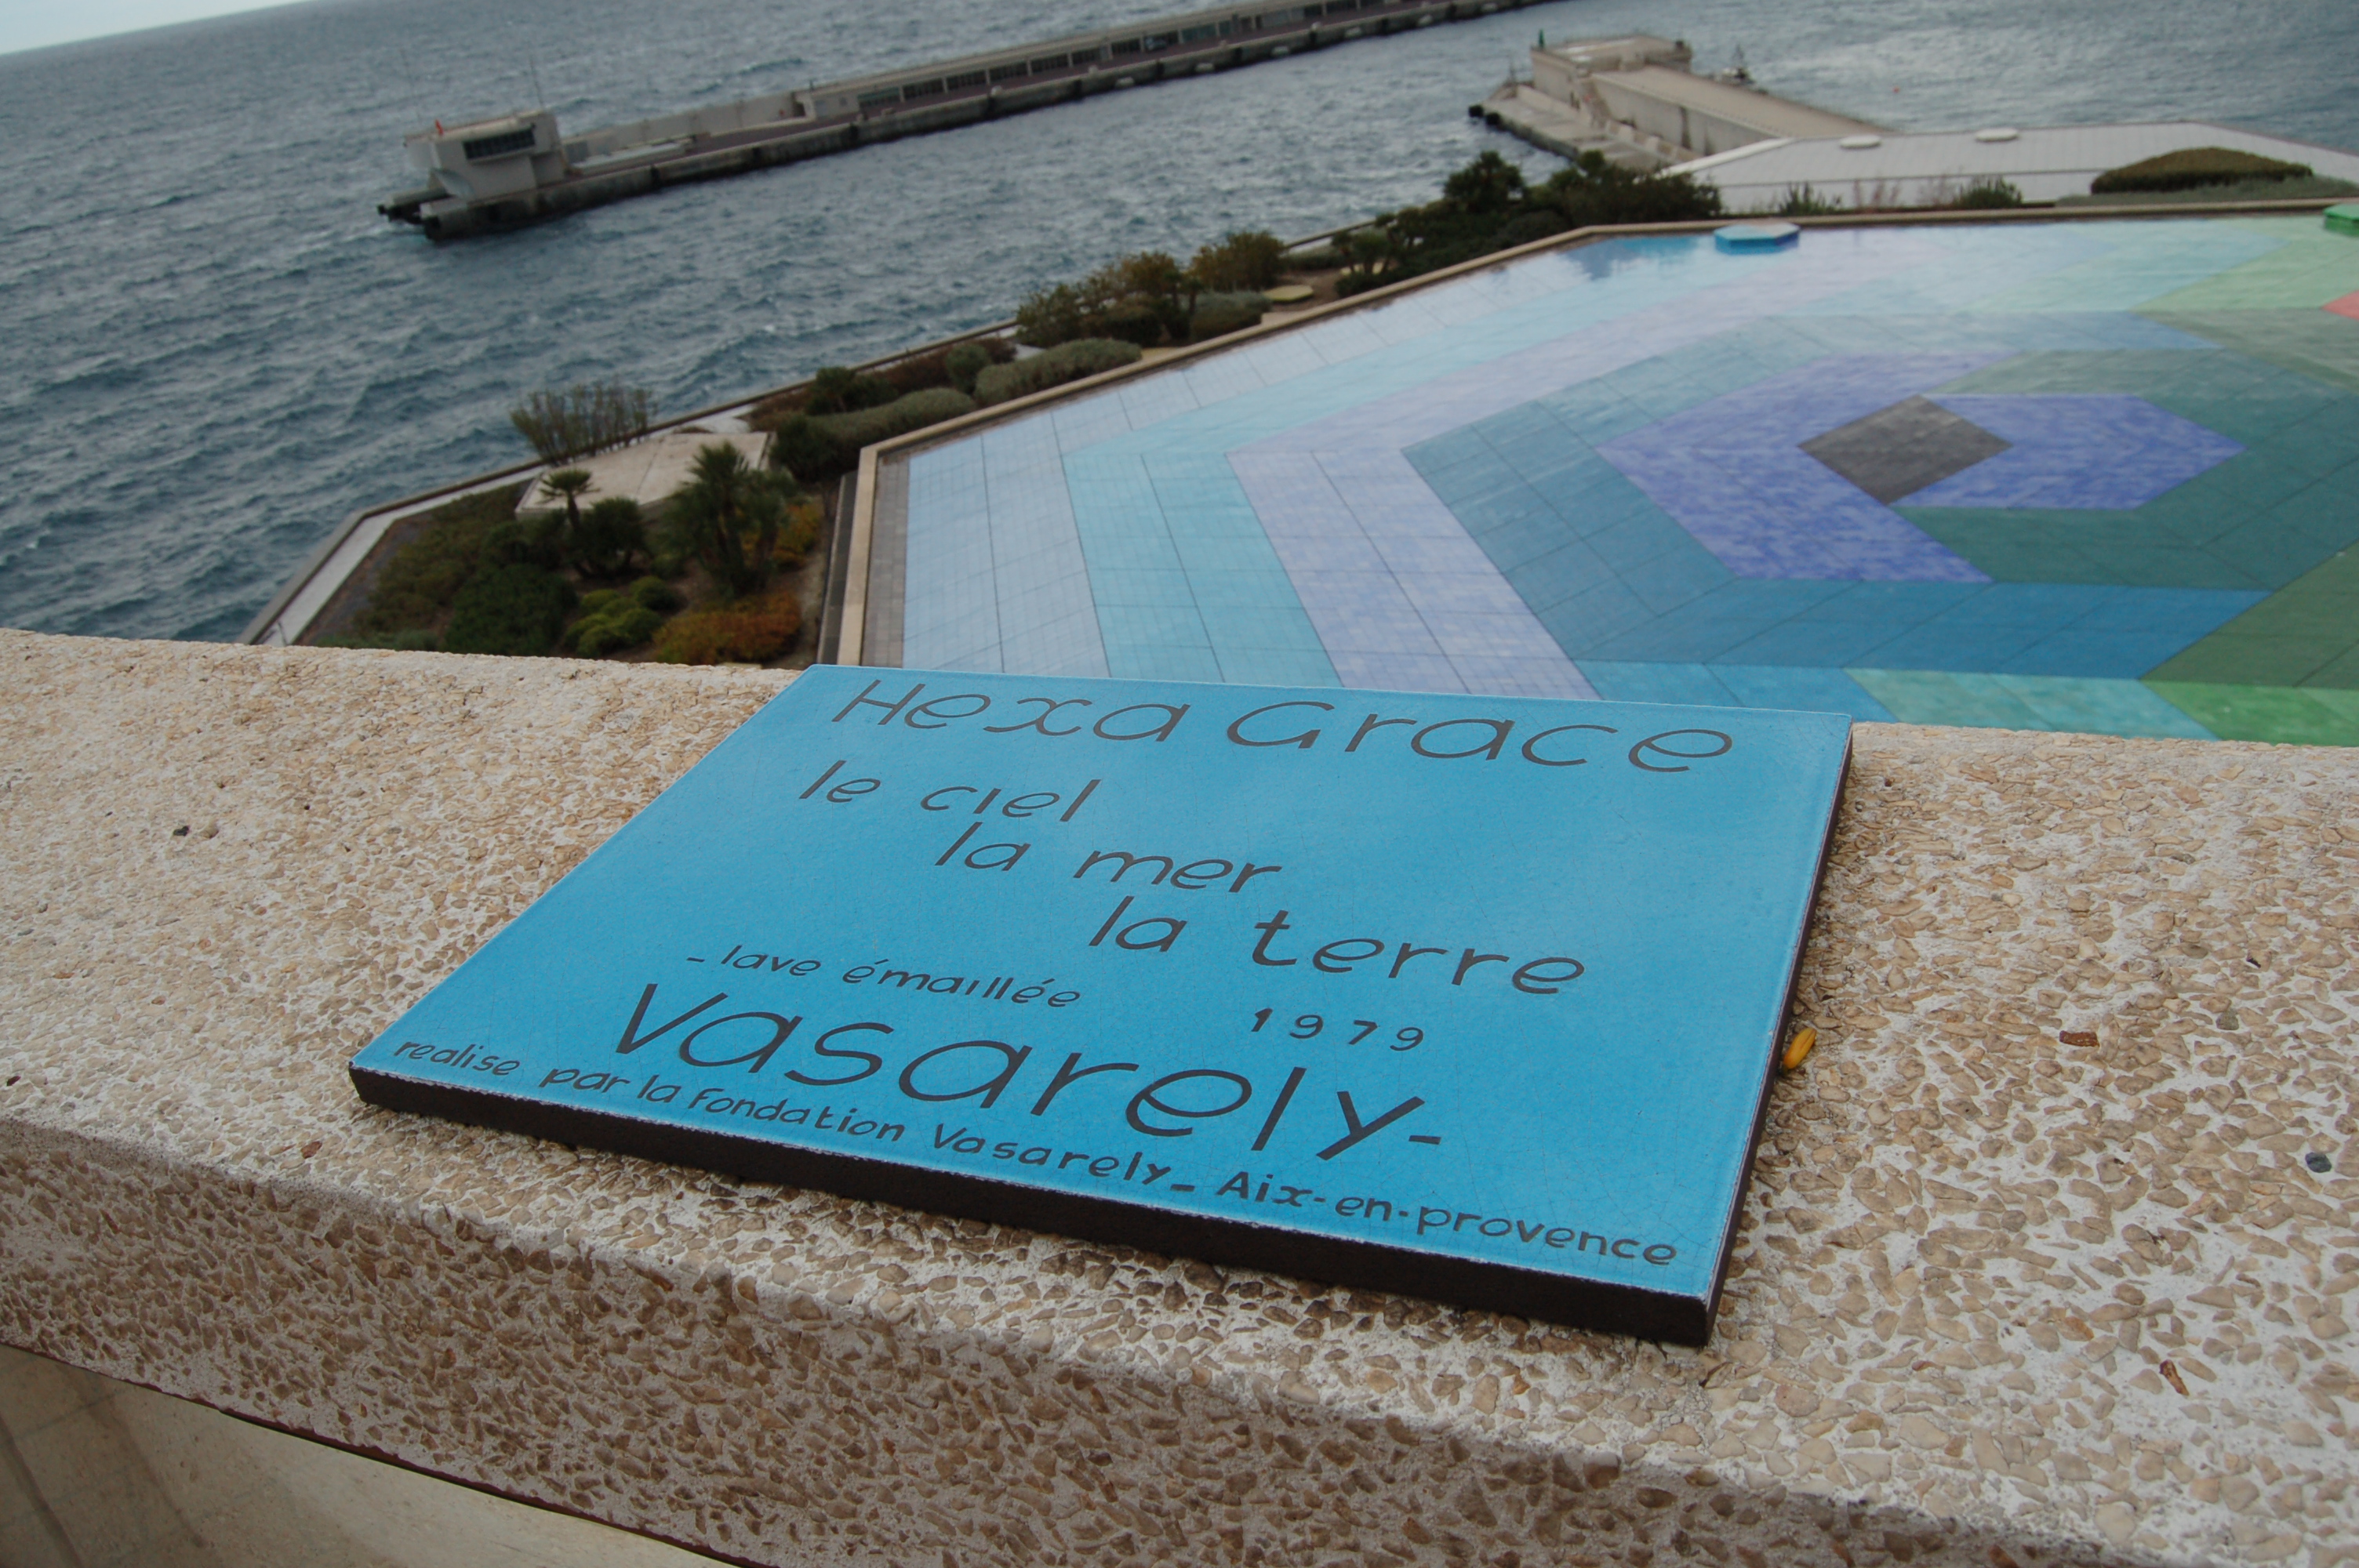 Hexa Grace
le ciel
la mer
la terre
- lave émaillée 1979
Vasarely-
realise par la Fondation Vasarely - Aix-en-provence